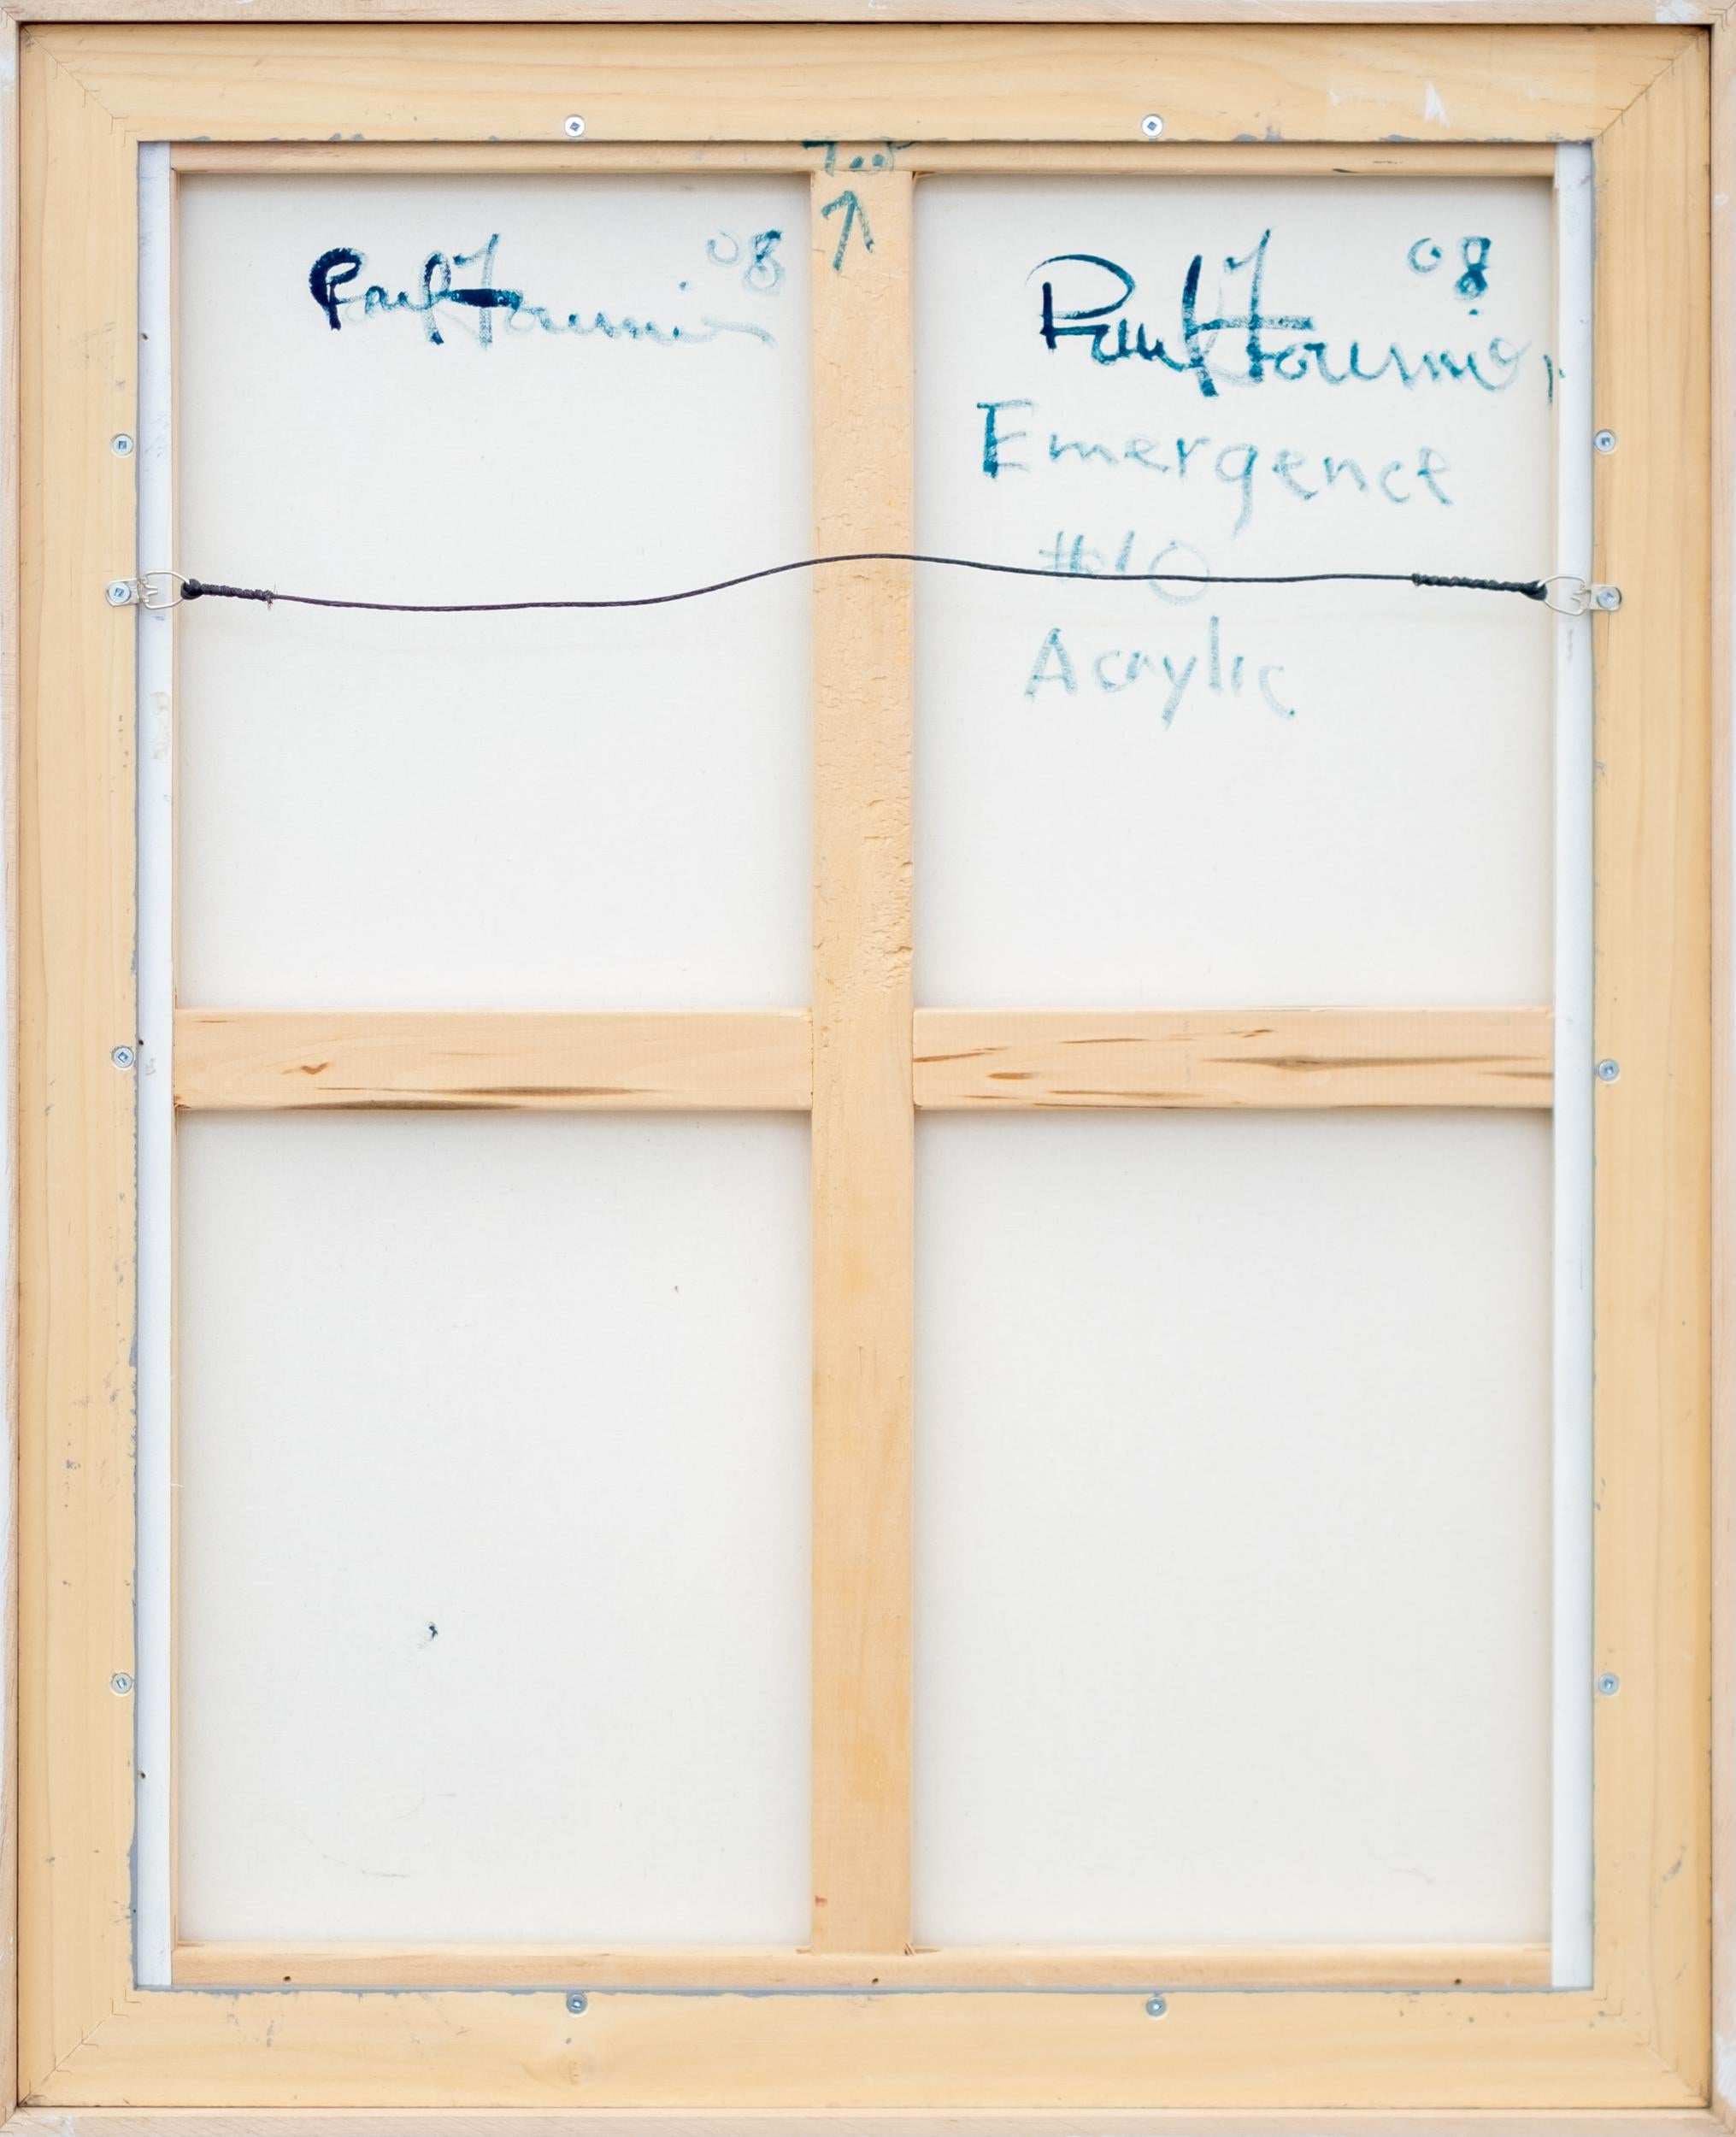 Top
↑
Paul Fournier 08
Paul Fournier 08
Emergence
#10
Acrylic